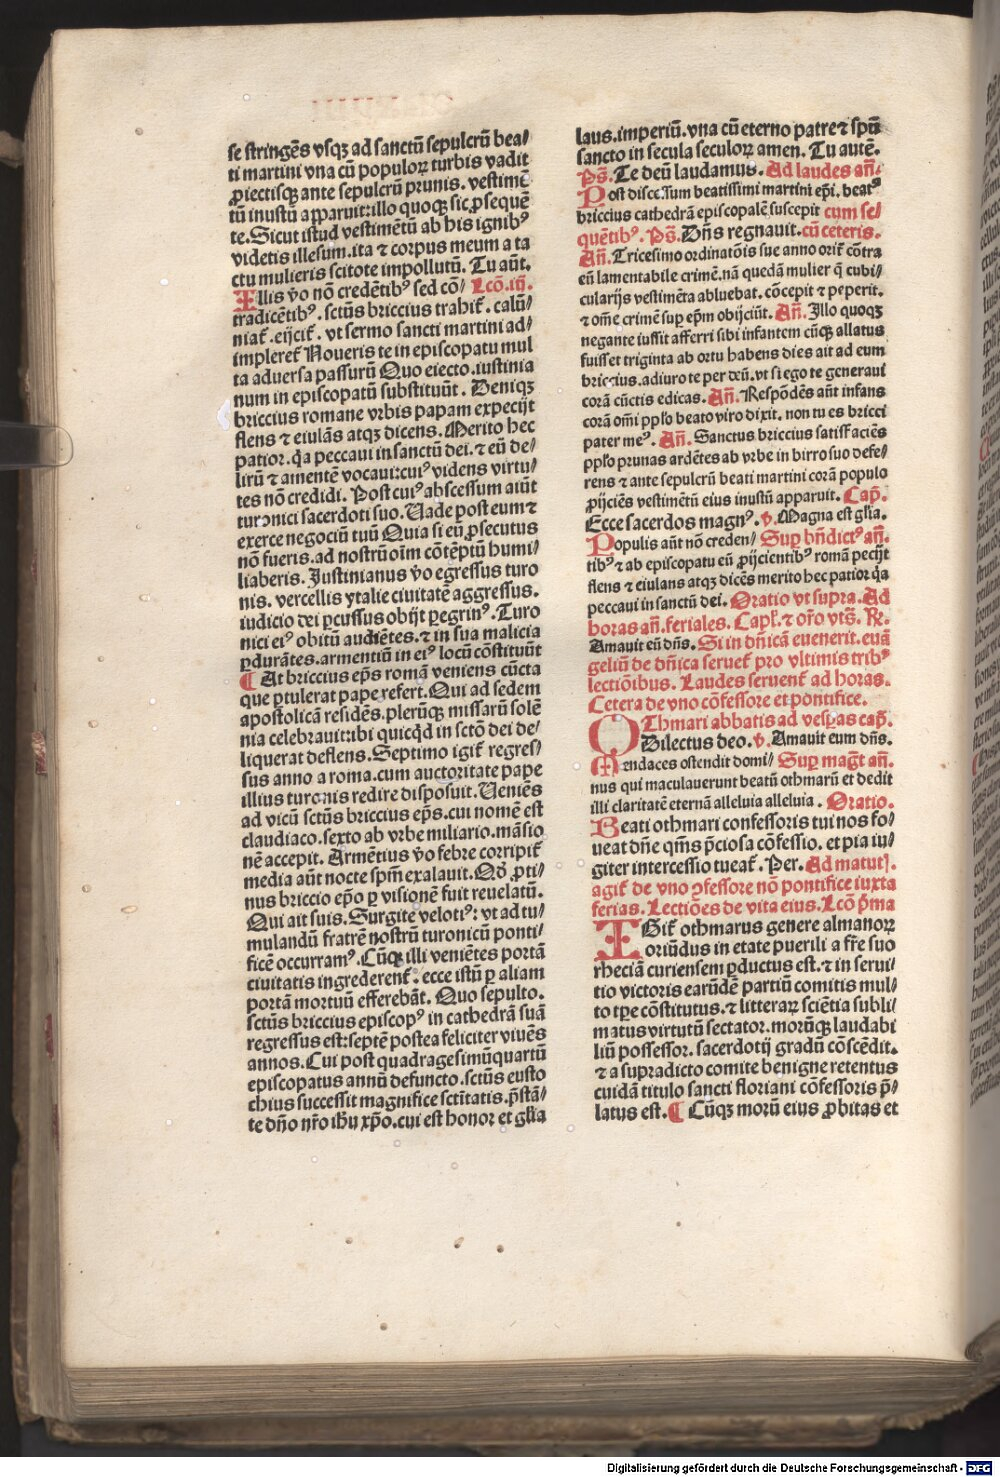 se stringēs vsqꝫ ad sanctū sepulcrū bea/
ti martini vna cū populoꝝ turbis vadit
ꝓiectisqꝫ ante sepulcrū prunis. vestimē
tū inustū apparuit: illo quoqꝫ sic ꝓsequē
te. Sicut istud vestimētū ab his ignibꝰ
videtis illesum. ita ⁊ corpus meum a ta
ctu mulieris scitote impollutū. Tu aūt.
Illis v̄o nō credētibꝰ sed cō/ Lcō.iij.
tradicētibꝰ. sctūs briccius trahit̄. calū/
niat̄. eijcit̄. vt sermo sancti martini ad/
impleret̄ Noueris te in episcopatu mul
ta aduersa passurū Quo eiecto. iustinia
num in episcopatū substituūt. Deniqꝫ
briccius romane vrbis papam expecijt
flens ⁊ eiulās atqꝫ dicens. Merito hec
patior. q̄a peccaui in sanctū dei. ⁊ eū de/
lirū ⁊ amentē vocaui: cuiꝰ videns virtu/
tes nō credidi. Post cuiꝰ abscessum aiūt
turonici sacerdoti suo. Uade post eum ⁊
exerce negociū tuū Quia si eū ꝓsecutus
nō fueris. ad nostrū oīm cōtēptū humi/
liaberis. Justinianus v̄o egressus turo
nis. vercellis ytalie ciuitatē aggressus.
iudicio dei ꝑcussus obijt ꝑegrinꝰ. Turo
nici eiꝰ obitū audiētes. ⁊ in sua malicia
ꝑdurātes. armentiū in eiꝰ locū cōstituūt
¶ At briccius ep̄s romā veniens cūcta
que ꝑtulerat pape refert. Qui ad sedem
apostolicā residēs. plerūqꝫ missarū solē
nia celebrauit: ibi quicq̄d in sctō dei de/
liquerat deflens. Septimo igit̄ regres/
sus anno a roma. cum auctoritate pape
illius turonis redire disposuit. Ueniēs
ad vicū sctūs briccius ep̄s. cui nomē est
claudiaco. sexto ab vrbe miliario. māsio
nē accepit. Armētius v̄o febre corripit̄
media aūt nocte sp̄m exalauit. Qd̄ ꝓti/
nus briccio ep̄o ꝑ visionē fuit reuelatū.
Qui ait suis. Surgite velotiꝰ: vt ad tu/
mulandū fratrē nostrū turonicū ponti/
ficē occurramꝰ. Cūqꝫ illi veniētes portā
ciuitatis ingrederent̄. ecce istū ꝑ aliam
portā mortuū efferebāt. Quo sepulto.
sctūs briccius episcopꝰ in cathedrā suā
regressus est: septē postea feliciter viuēs
annos. Cui post quadragesimūquartū
episcopatus annū defuncto. sctūs eusto
chius successit magnifice sctītatis. p̄stā/
te dn̄o nr̄o ihū xp̄o. cui est honor et gl̄ia
laus. imperiū. vna cū eterno patre ⁊ sp̄ū
sancto in secula seculoꝝ amen. Tu autē.
Ps̄. Te deū laudamus. Ad laudes an̄.
Post discessum beatissimi martini ep̄i. beatꝰ
briccius cathedrā episcopalē suscepit cum se/
quētibꝰ. Ps̄. Dn̄s regnauit. cū ceteris.
An̄. Tricesimo ordinatōis sue anno orit̄ cōtra
eū lamentabile crimē. nā quedā mulier q̄ cubi/
cularijs vestimēta abluebat. cōcepit ⁊ peperit.
⁊ om̄e crimē suꝑ ep̄m obijciūt. An̄. Illo quoqꝫ
negante iussit afferri sibi infantem cūqꝫ allatus
fuisset triginta ab ortu habens dies ait ad eum
briccius. adiuro te per deū. vt si ego te generaui
corā cūctis edicas. An̄. Respōdēs aūt infans
corā om̄i pplo beato viro dixit. non tu es bricci
pater meꝰ. An̄. Sanctus briccius satisfaciēs
pplo prunas ardētes ab vrbe in birro suo defe/
rens ⁊ ante sepulcrū beati martini corā populo
ꝓijciēs vestimētū eius inustū apparuit. Cap̄.
Ecce sacerdos magnꝰ. v̄. Magna est gl̄ia.
Populis aūt nō creden/ Suꝑ bn̄dictꝰ an̄.
tibꝰ ⁊ ab episcopatu eū ꝓijcientibꝰ romā pecijt
flens ⁊ eiulans atqꝫ dicēs merito hec patior q̄a
peccaui in sanctū dei. Oratio vt supra. Ad
horas an̄. feriales. Capl̄. ⁊ or̄o vts̄. R̄.
Amauit eū dn̄s. Si in dn̄ica euenerit. euā
geliū de dn̄ica seruet̄ pro vltimis tribꝰ
lectiōibus. Laudes seruent̄ ad horas.
Cetera de vno cōfessore et pontifice.
Othmari abbatis ad vesꝑas cap̄.
Dilectus deo. v̄. Amauit eum dn̄s.
Mendaces ostendit domi/ Suꝑ maḡt an̄.
nus qui maculauerunt beatū othmarū et dedit
illi claritatē eternā alleluia alleluia. Oratio.
Beati othmari confessoris tui nos fo/
ueat dn̄e qm̄s p̄ciosa cōfessio. et pia iu/
giter intercessio tueat̄. Per. Ad matut̄.
agit̄ de vno ꝯfessore nō pontifice iuxta
ferias. Lectiōes de vita eius. Lcō p̄ma
IGit̄ othmarus genere almanoꝝ
oriūdus in etate puerili a fr̄e suo
rheciā curiensem ꝑductus est. ⁊ in serui/
tio victoris earūdē partiū comitis mul/
to tꝑe cōstitutus. ⁊ litteraꝝ sciētia subli/
matus virtutū sectator. morūqꝫ laudabi
liū possessor. sacerdotij gradū cōscēdit.
⁊ a supradicto comite benigne retentus
cuidā titulo sancti floriani cōfessoris p̄/
latus est. ¶ Cūqꝫ morū eius ꝓbitas et
Digitalisierung gefördert durch die Deutsche Forschungsgemeinschaft - DFG